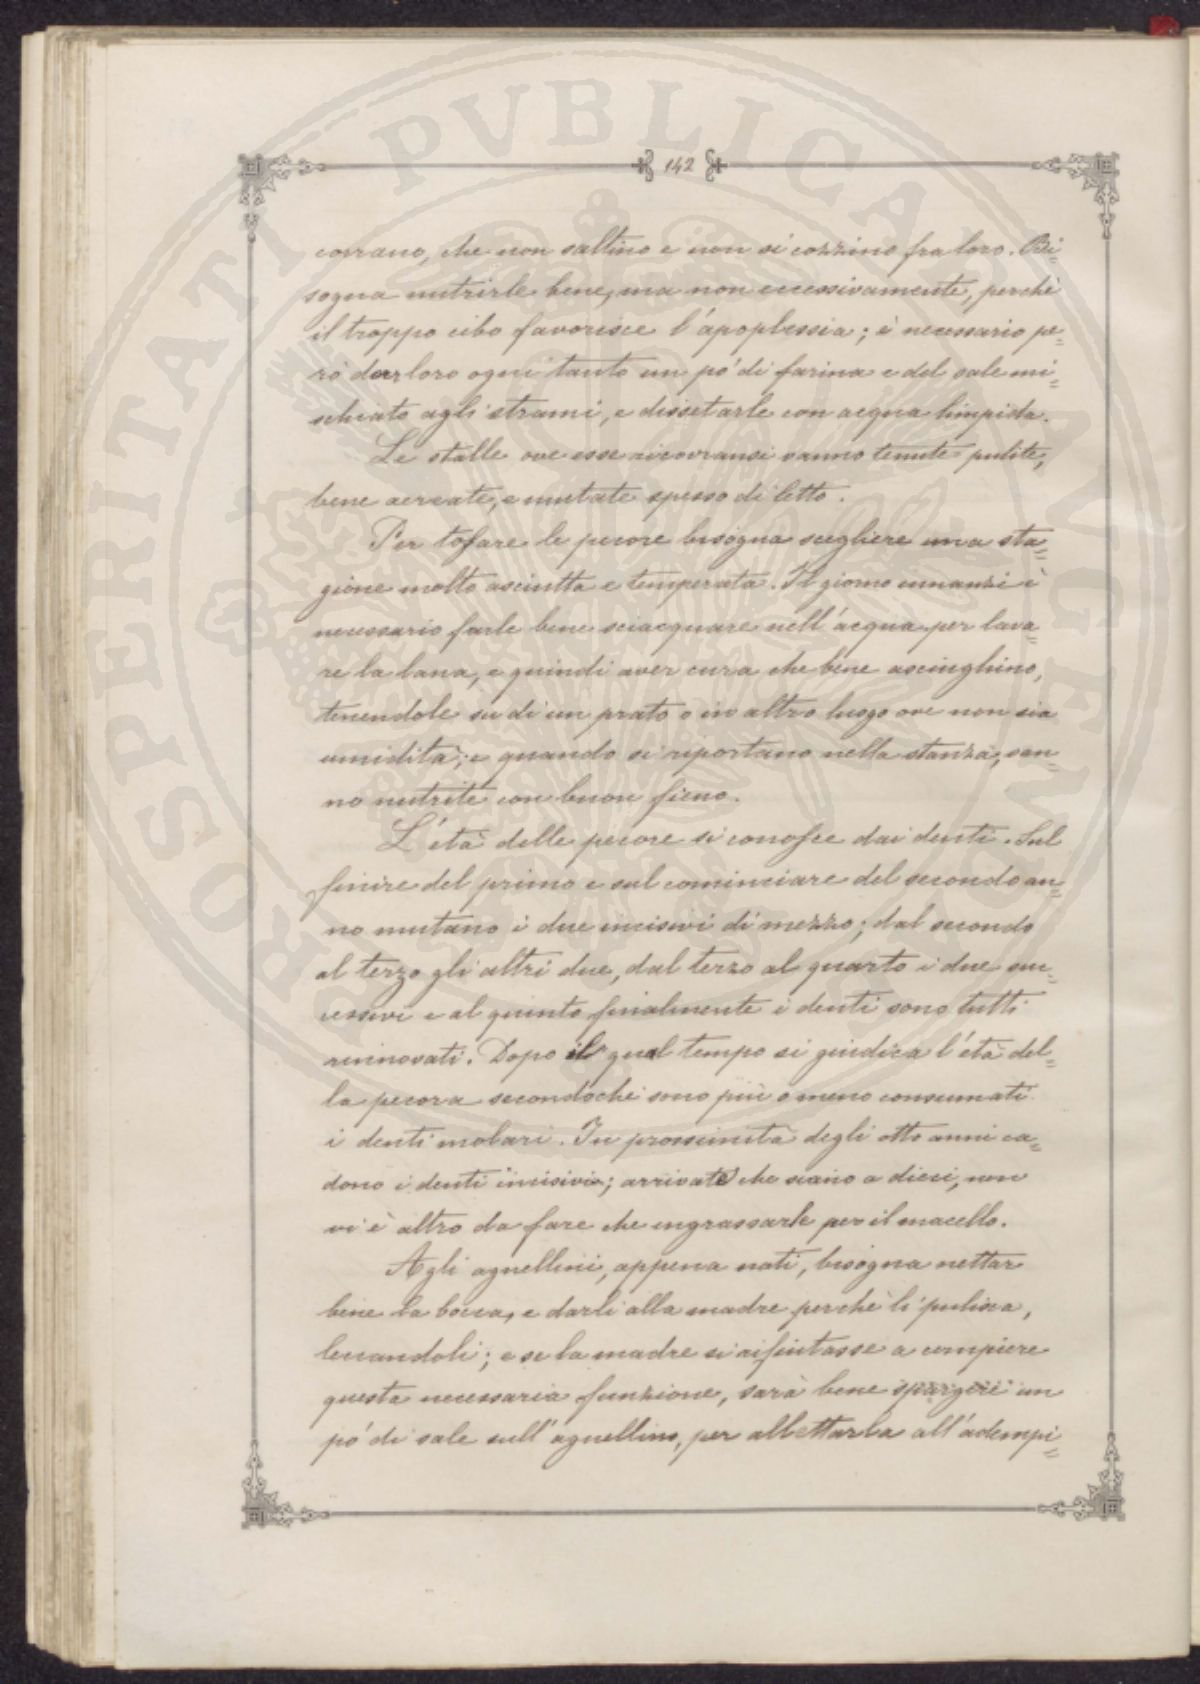 142
corrano, che non saltino e non si cozzino fra loro. Bi=
sogna nutrirle bene, ma non eccessivamente, perchè
il troppo cibo favorisce l'apoplessia; è necessario pe=
rò dar loro ogni tanto un pó di farina e del sale mi=
schiato agli strami, e dissetarle con acqua limpida.
Le stalle ove esse ricovransi vanno tenute pulite,
bene aereate, e mutate spesso di letto.
Per tosare le pecore bisogna scegliere una sta=
gione molto asciutta e temperata. Il giorno innanzi è
necessario farle bene sciacquare nell'acqua per lava=
re la lana, e quindi aver cura che bene asciughino,
tenendole su di un prato o in altro luogo ove non sia
umidità; e quando si riportano nella stanza, san=
no nutrite con buon fieno.
L'età delle pecore si conosce dai denti. Sul
finire del primo e sul cominciare del secondo an=
no mutano i due incisivi di mezzo; dal secondo
al terzo gli altri due, dal terzo al quarto i due suc=
cessivi e al quinto finalmente i denti sono tutti
rinnovati. Dopo il qual tempo si giudica l'età del=
la pecora secondochè sono più o meno consumati
i denti molari. In prossimità degli otto anni ca=
dono i denti incisivi; arrivate che siano a dieci, non
vi è altro da fare che ingrassarle per il macello.
Agli agnellini, appena nati, bisogna nettar
bene la bocca, e darli alla madre perchè li pulisca,
leccandoli; e se la madre si rifiutasse a compiere
questa necessaria funzione, sarà bene spargere un
pó di sale sull'agnellino, per allettarla all'adempi=
PROSPERITATI PUBLICAE AUGENDAE